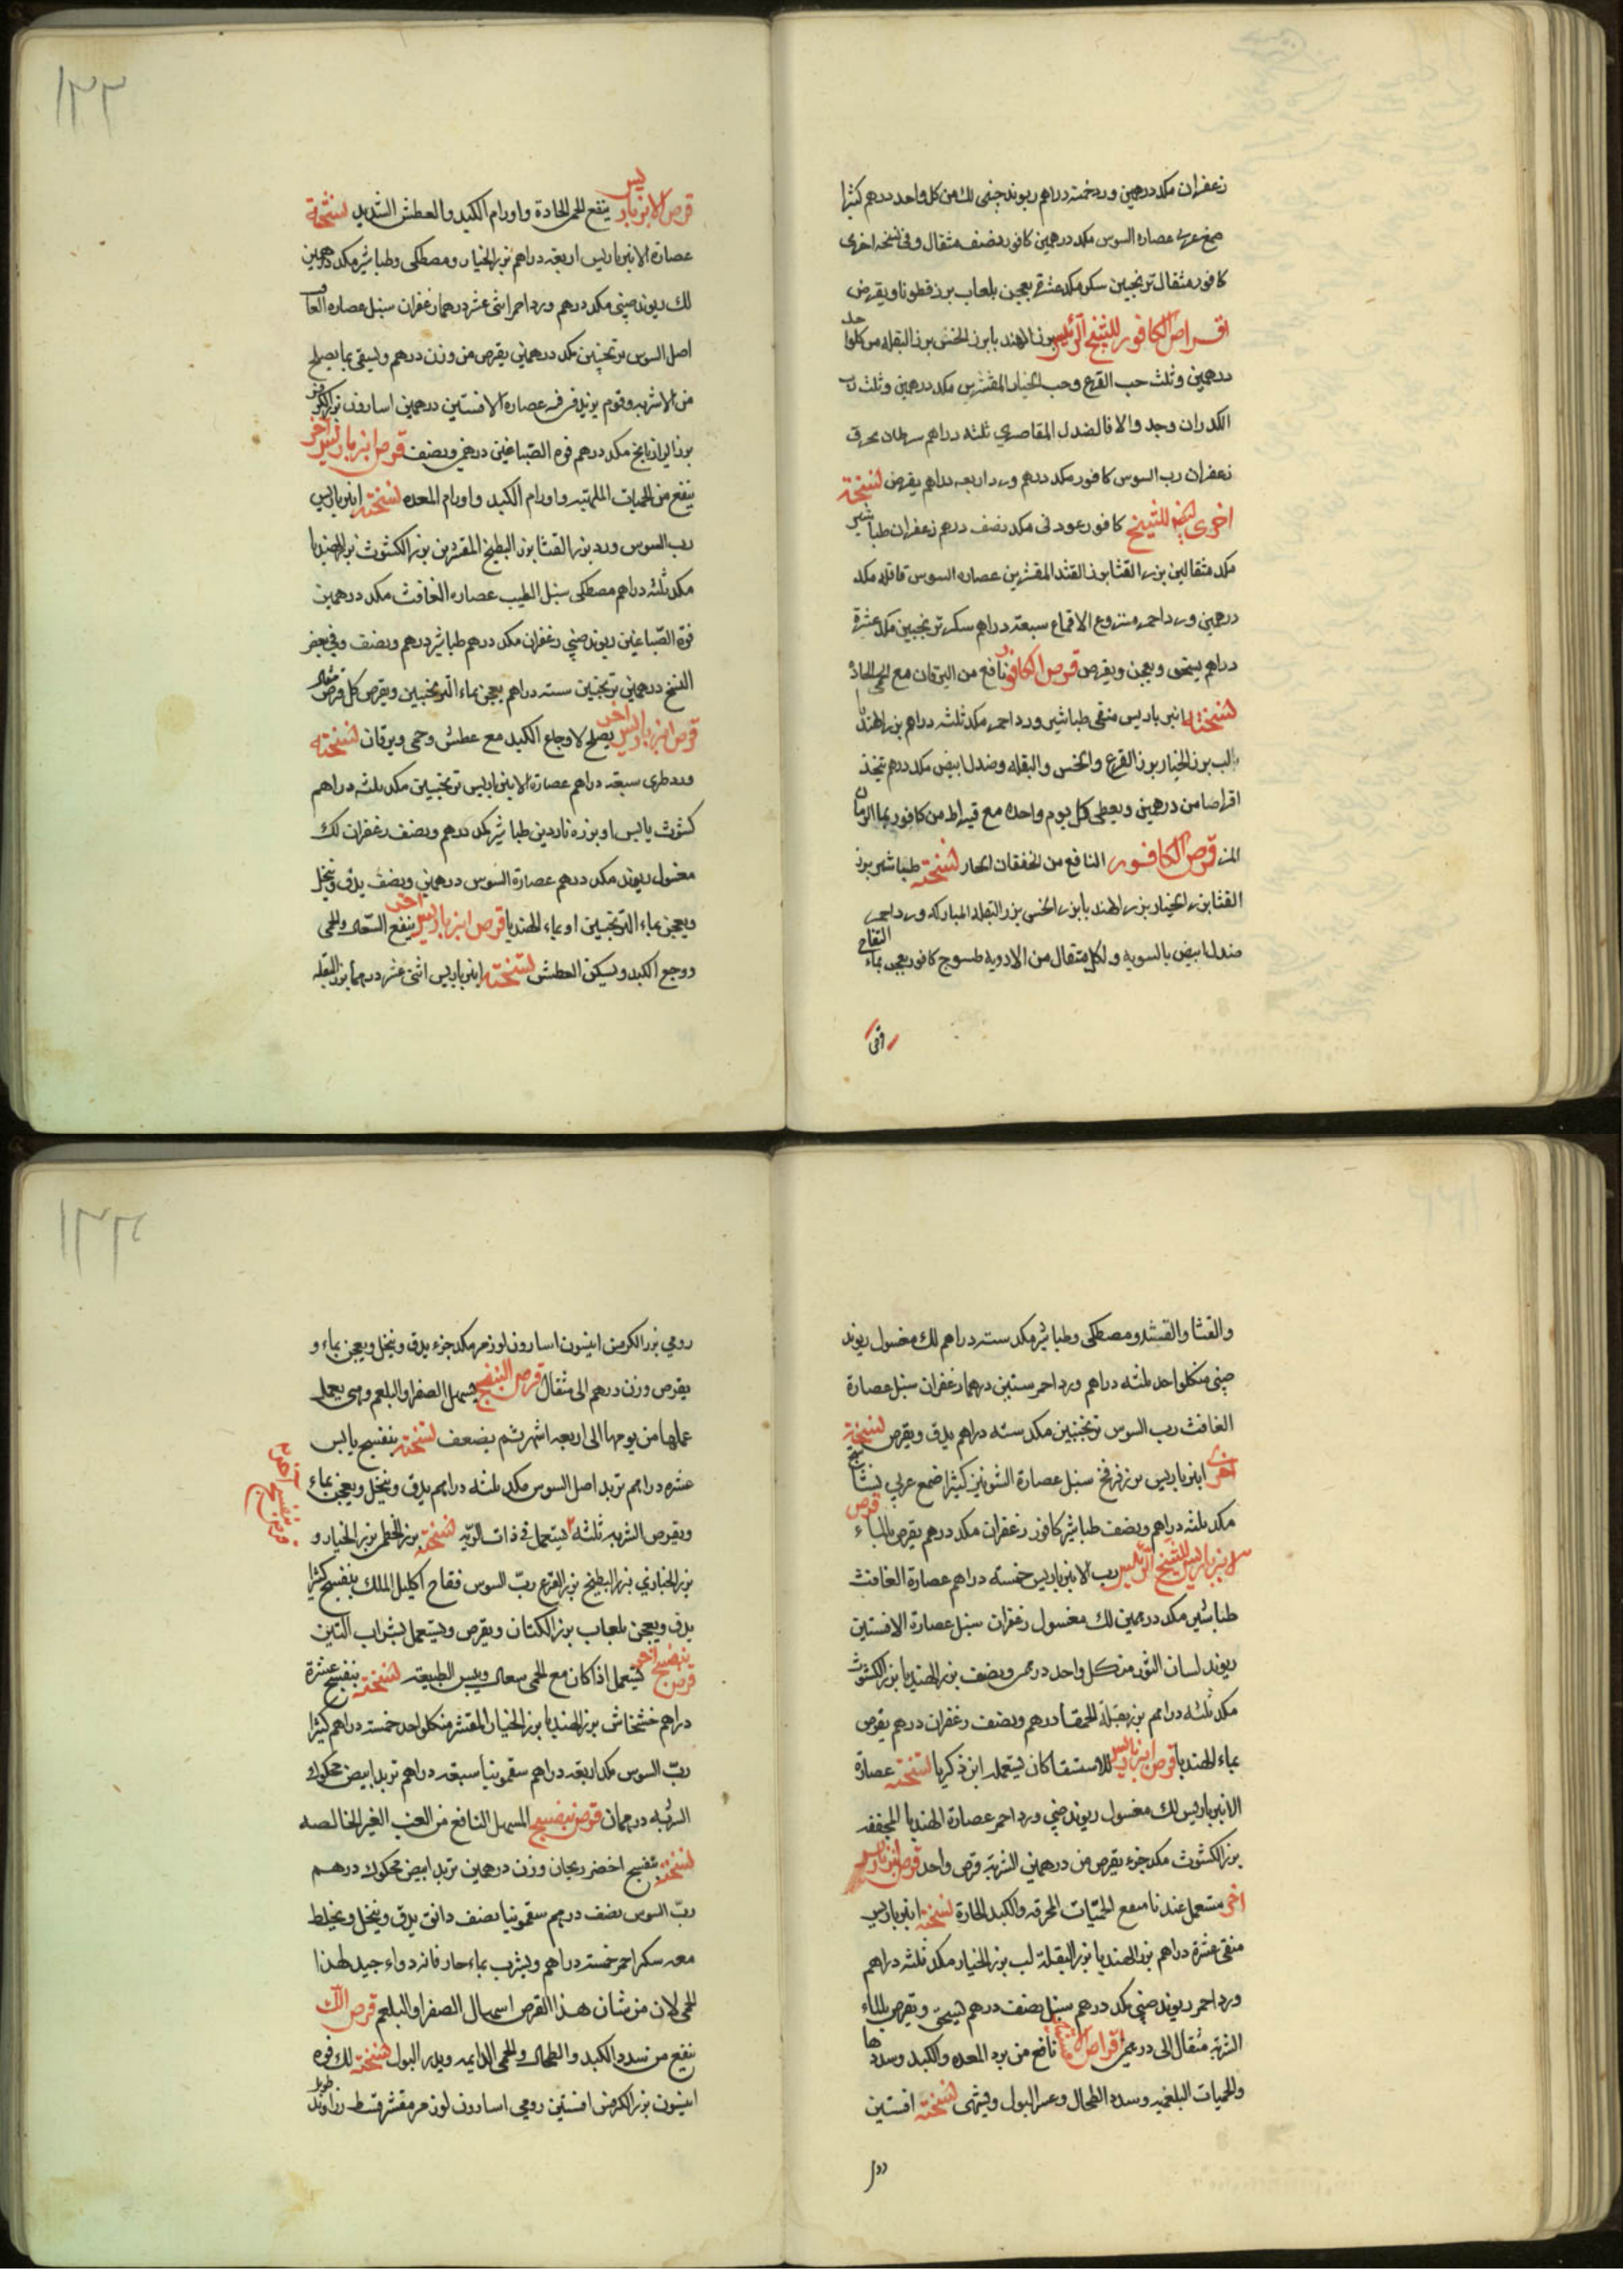 زعفران مكد درهمين ورد خمسة دراهم ريوند صينى لك من كل واحد درهم كثيرا
صمغ عربى عصاره السوس مكد درهمين كافور نصف مثقال وفى نسخه اخرى
كافور مثقال ترنجبين سكر مكد عشرة يعجن بلعاب بزر قطونا ويقرص
اقراص الكافور للشيخ الرئيس بزر الهندبا بزر الخس بزر البقله من كلواحد
درهمين وثلث حب القرع وحب الخيار المقشرين مكد درهمين وثلث رب
الكدران وجد والا فالصندل المقاصرى ثلثه دراهم سرطان محرق
زعفران رب السوس كافور مكد درهم ورد اربعه دراهم يقرص نسخة
اخرى ايضا للشيخ كافور عود نى مكد نصف درهم زعفران طباشير
مكد مثقالين بزر القثا بزر القثد المقشرين عصاره السوس قاقله مكد
درهمين ورد احمر منزوع الاقماع سبعة دراهم سكر ترنجبين مكد عشرة
دراهم يسحق ويعجن ويقرص قرص الكافور نافع من اليرقان مع الحمى الحادة
نسخته انبرباريس منقى طباشير ورد احمر مكد ثلثه دراهم بزر الهندبا
لب بزر الخيار بزر القرع والخس والبقله وصندل ابيض مكد درهم يتخذ
اقراصا من درهمين ويعطى كل يوم واحده مع قيراط من كافور بما الرمان
المز قرص الكافور النافع من الخفقان الحار نسخته طباشير بزر
القثا بزر الخيار بزر الهندبا بزر الخس بزر البقله المباركه ورد احمر
صندل ابيض بالسويه ولكل مثقال من الادويه طسوج كافور يعجن بماء التفاح
قرص الانبرباريس ينفع الحمى الحادة واورام الكبد والعطش الشديد نسخته
عصارة الانبرباريس اربعه دراهم بزر الخيار ومصطكى وطباشير مكد درهمين
لك ريوند صينى مكد درهم ورد احمر اثنى عشر درهما زعفران سنبل عصاره الغافت
اصل السوس ترنجبين مكد درهمين يقرص من وزن درهم ويسقى بما يصلح
من الاشربه وقوم يزيد فيه عصاره الافسنتين درهمين اسارون بزر الكرفس
بزر الرازيانج مكد درهم فوه الصباغين درهمى ونصف قرص انبرباريس اخر
ينفع من الحميات الملتهبه واورام الكبد واورام المعده نسخته انبرباريس
رب السوس ورد بزر القثا بزر البطيخ المقشرين بزر الكشوث بزر الهندبا
مكد ثلثه دراهم مصطكى سنبل الطيب عصاره الغافث مكد درهمين
فوة الصباغين ريوند صينى زعفران مكد درهم طباشير درهم ونصف وفى بعض
النسخ درهمين ترنجبين سته دراهم يعجن بماء الترنجبين ويقرص كل قرص مثقال
قرص انبرباريس اخر يصلح لاوجاع الكبد مع عطش وحمى ويرقان نسخته
ورد طرى سبعة دراهم عصارة الانبرباريس ترنجبين مكد ثلثه دراهم
كشوث يابس او بزره ناردين طباشير مكد درهم ونصف زعفران لك
مغسول ريوند مكد درهم عصارة السوس درهمين ونصف يدق وينخل
ويعجن بماء الترنجبين او بماء الهندبا قرص انبرباريس اخر ينفع السعال والحمى
ووجع الكبد ويسكن العطش نسخته انبرباريس اثنى عشر درهما بزر البقله
والقثا والقثد ومصطكى وطباشير مكد سته دراهم لك مغسول ريوند
صينى من كلواحد ثلثه دراهم ورد احمر ستين درهما زعفران سنبل عصارة
الغافث رب السوس ترنجبين مكد سته دراهم يدق ويقرص نسخة
اخرى انبرباريس بزر فرفخ سنبل عصارة الشونيز كثيرا صمغ عربى نشا
مكد ثلثه دراهم ونصف طباشير كافور زعفران مكد درهم يقرص بالماء قرص
الانبرباريس للشيخ الرئيس رب الانبرباريس خمسة دراهم عصارة الغافث
طباشير مكد درهمين لك مغسول زعفران سنبل عصارة الافسنتين
ريوند لسان الثور من كل واحد درهم ونصف بزر الهندبا بزر الكشوث
مكد ثلثه دراهم بزر بقلة الحمقا درهم ونصف زعفران درهم يقرص
بماء الهندبا قرص انبرباريس للاستسقا كان يستعمله ابن زكريا نسخته عصارة
الانبرباريس لك مغسول ريوند صينى ورد احمر عصارة الهندبا المجففه
بزر الكشوث مكد جزء يقرص من درهمين الشربة قرص واحد قرص انبرباريس
اخر مستعمل عندنا ينفع الحميات المحرقه والكبد الحارة نسخته انبرباريس
منقى عشرة دراهم بزر الهندبا بزر البقلة لب بزر الخيار مكد ثلثه دراهم
ورد احمر ريوند صينى مكد درهم سنبل نصف درهم يسحق ويقرص بالماء
الشربة مثقال الى درهمين اقراص نافع من برد المعده والكبد وسددها
والحميات البلغميه وسدد الطحال وعسر البول ويشهى نسخته افسنتين
رومي
رومي بزر الكرفس انيسون اسارون لوز مر مكد جزء يدق وينخل ويعجن بماء و
يقرص وزن درهم الى مثقال قرص البنفسج يسهل الصفرا والبلغم وهى يعمل
عملها من يومها الى اربعه اشهر ثم يضعف نسخته بنفسج يابس
عشره دراهم تربد اصل السوس مكد ثلثه دراهم يدق وينخل ويعجن بماء
ويقرص الشربه ثلثه يستعمل فى ذات الريه نسخته بزر الخطمى بزر الخيار و
قرص بنفسج اخر
بزر الخبازي بزر البطيخ بزر القرع رب السوس فقاح اكليل الملك بنفسج كثيرا
يدق ويعجن بلعاب بزر الكتان ويقرص ويستعمل بشراب التين
قرص بنفسج اخر يستعمل اذا كان مع الحمى سعال ويبس الطبيعة نسخته بنفسج عشرة
دراهم خشخاش بزر الهندبا بزر الخيار المقشر من كلواحد خمسة دراهم كثيرا
رب السوس مكد اربعه دراهم سقمونيا سبعه دراهم تربد ابيض محكوك
الشربه درهمان قرص بنفسج المسهل النافع من الغب الغير الخالصه
نسخته بنفسج اخضر ريحان وزن درهمين تربد ابيض محكوك درهم
رب السوس نصف درهم سقمونيا نصف دانق يدق وينخل ويخلط
معه سكر احمر خمسة دراهم ويشرب بماء حار فانه دواء جيد لهذا
الحمى لان من شان هذا القرص اسهال الصفرا والبلغم قرص اللك
ينفع من سدد الكبد والطحال والحمى الدايمه ويدر البول نسخته لك فوه
انيسون بزر الكرفس افسنتين رومى اسارون لوز مر مقشر قسط زراوند طويل